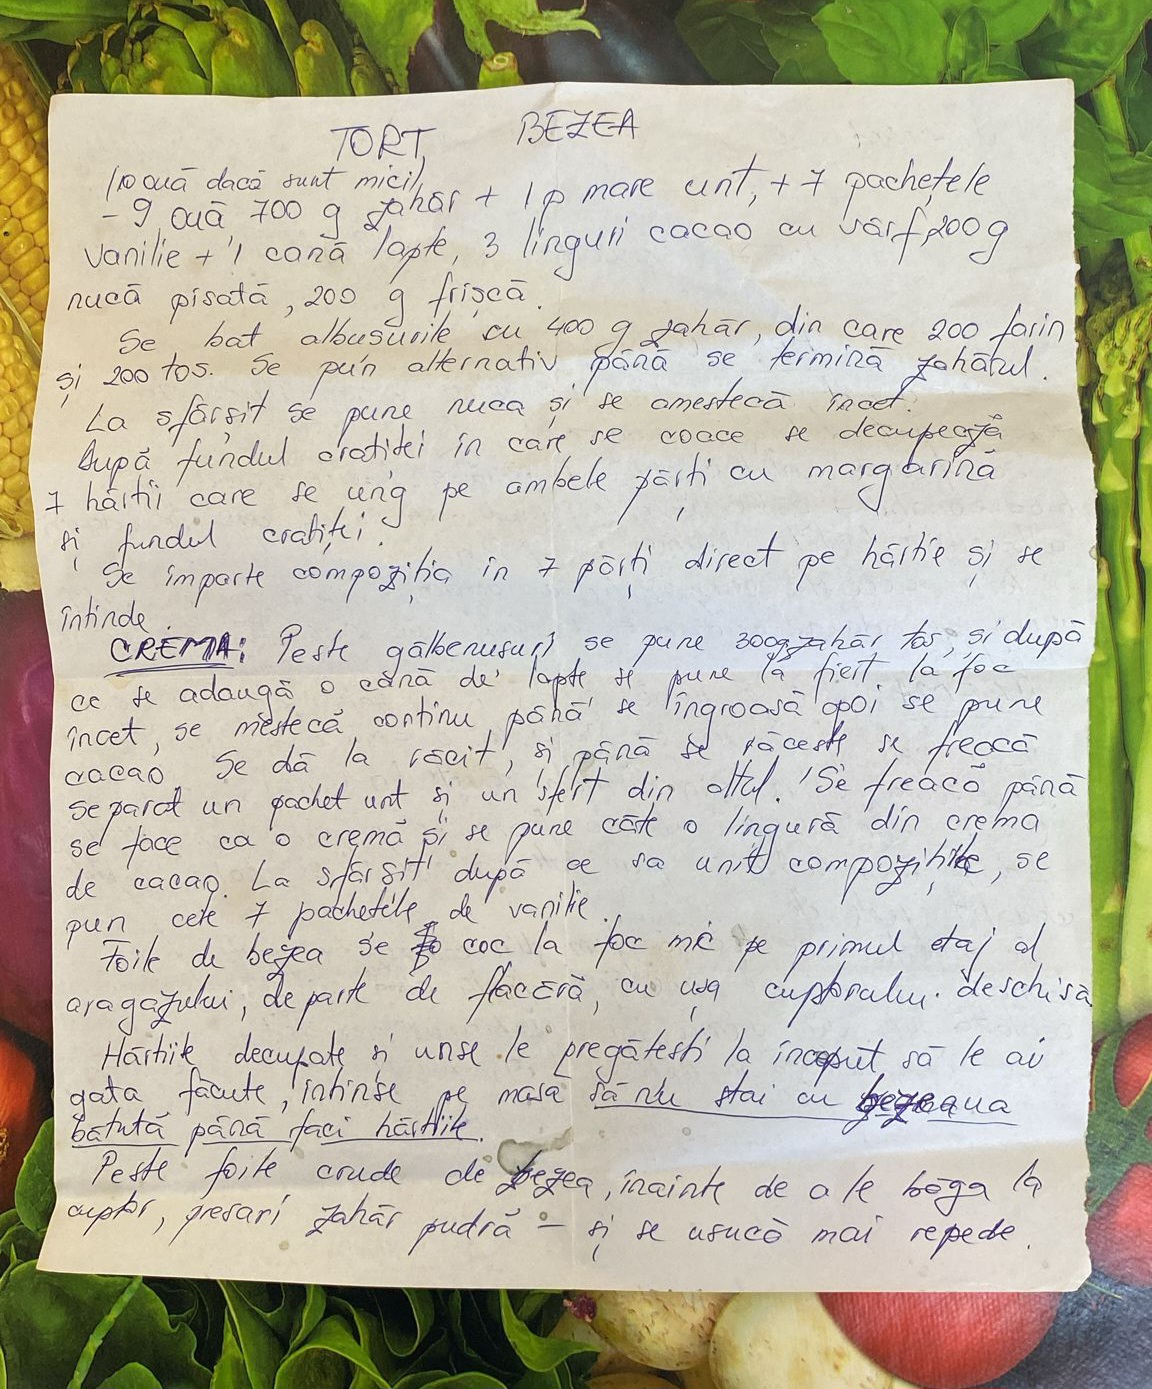 TORT BEZEA
(10 ouă dacă sunt mici)
- 9 ouă, 700 g zahăr + 1 p mare unt, + 7 pachețele
vanilie + 1 cană lapte, 3 linguri cacao cu vârf, 200 g
nucă pisată, 200 g frișcă.
Se bat albușurile cu 400 g zahăr, din care 200 farin
și 200 tos. Se pun alternativ până se termină zahărul.
La sfârșit se pune nuca și se amestecă încet.
După fundul cratiței în care se coace se decupează
7 hârtii care se ung pe ambele părți cu margarină
și fundul cratiței.
Se împarte compoziția în 7 părți direct pe hârtie și se
întinde.
CREMA: Peste gălbenușuri se pune 300g zahăr tos, și după
ce se adaugă o cană de lapte se pune la fiert la foc
încet, se mestecă continu până se îngroașă apoi se pune
cacao. Se dă la răcit, și până se răcește se freacă
separat un pachet unt și un sfert din altul. Se freacă până
se face ca o cremă și se pune câte o lingură din crema
de cacao. La sfârșit după ce sa unit compozițiile, se
pun cele 7 pachețele de vanilie.
Foile de bezea se coc la foc mic pe primul etaj al
aragazului, departe de flacără, cu ușa cuptorului deschisă
Hârtiile decupate și unse le pregătești la început să le ai
gata făcute, întinse pe masă să nu stai cu bezeaua
bătută până faci hârtiile.
Peste foile crude de bezea, înainte de a le băga la
cuptor, presari zahăr pudră – și se usucă mai repede.